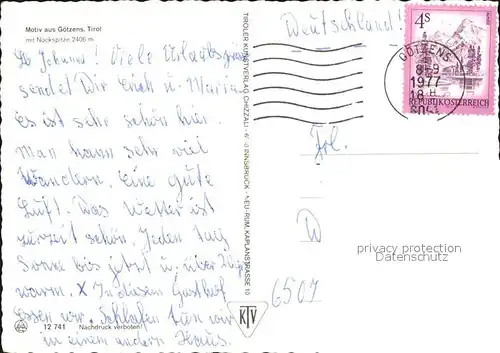 Motiv aus Götzens, Tirol
mit Nockspitze 2406 m
Viele Urlaubsgrüsse
sendet Dir Erich u. Maria.
Es ist sehr schön hier.
Man kann sehr viel
Wandern. Eine gute
Luft. Das Wetter ist
zurzeit schön. Jeden Tag
Sonne bis jetzt u. über
warm. X In diesem Gasthof
Essen wir. Schlafen tun wir
in einem andern Haus.
12 741 Nachdruck verboten!
TIROLER KUNSTVERLAG CHIZZALI INNSBRUCK NEU-RUM, KAPLANSTRASSE 10
KTV
Deutschland!
4S
REPUBLIK ÖSTERREICH
GÖTZENS
1977
Frl.
D
6501
privacy protection
Datenschutz